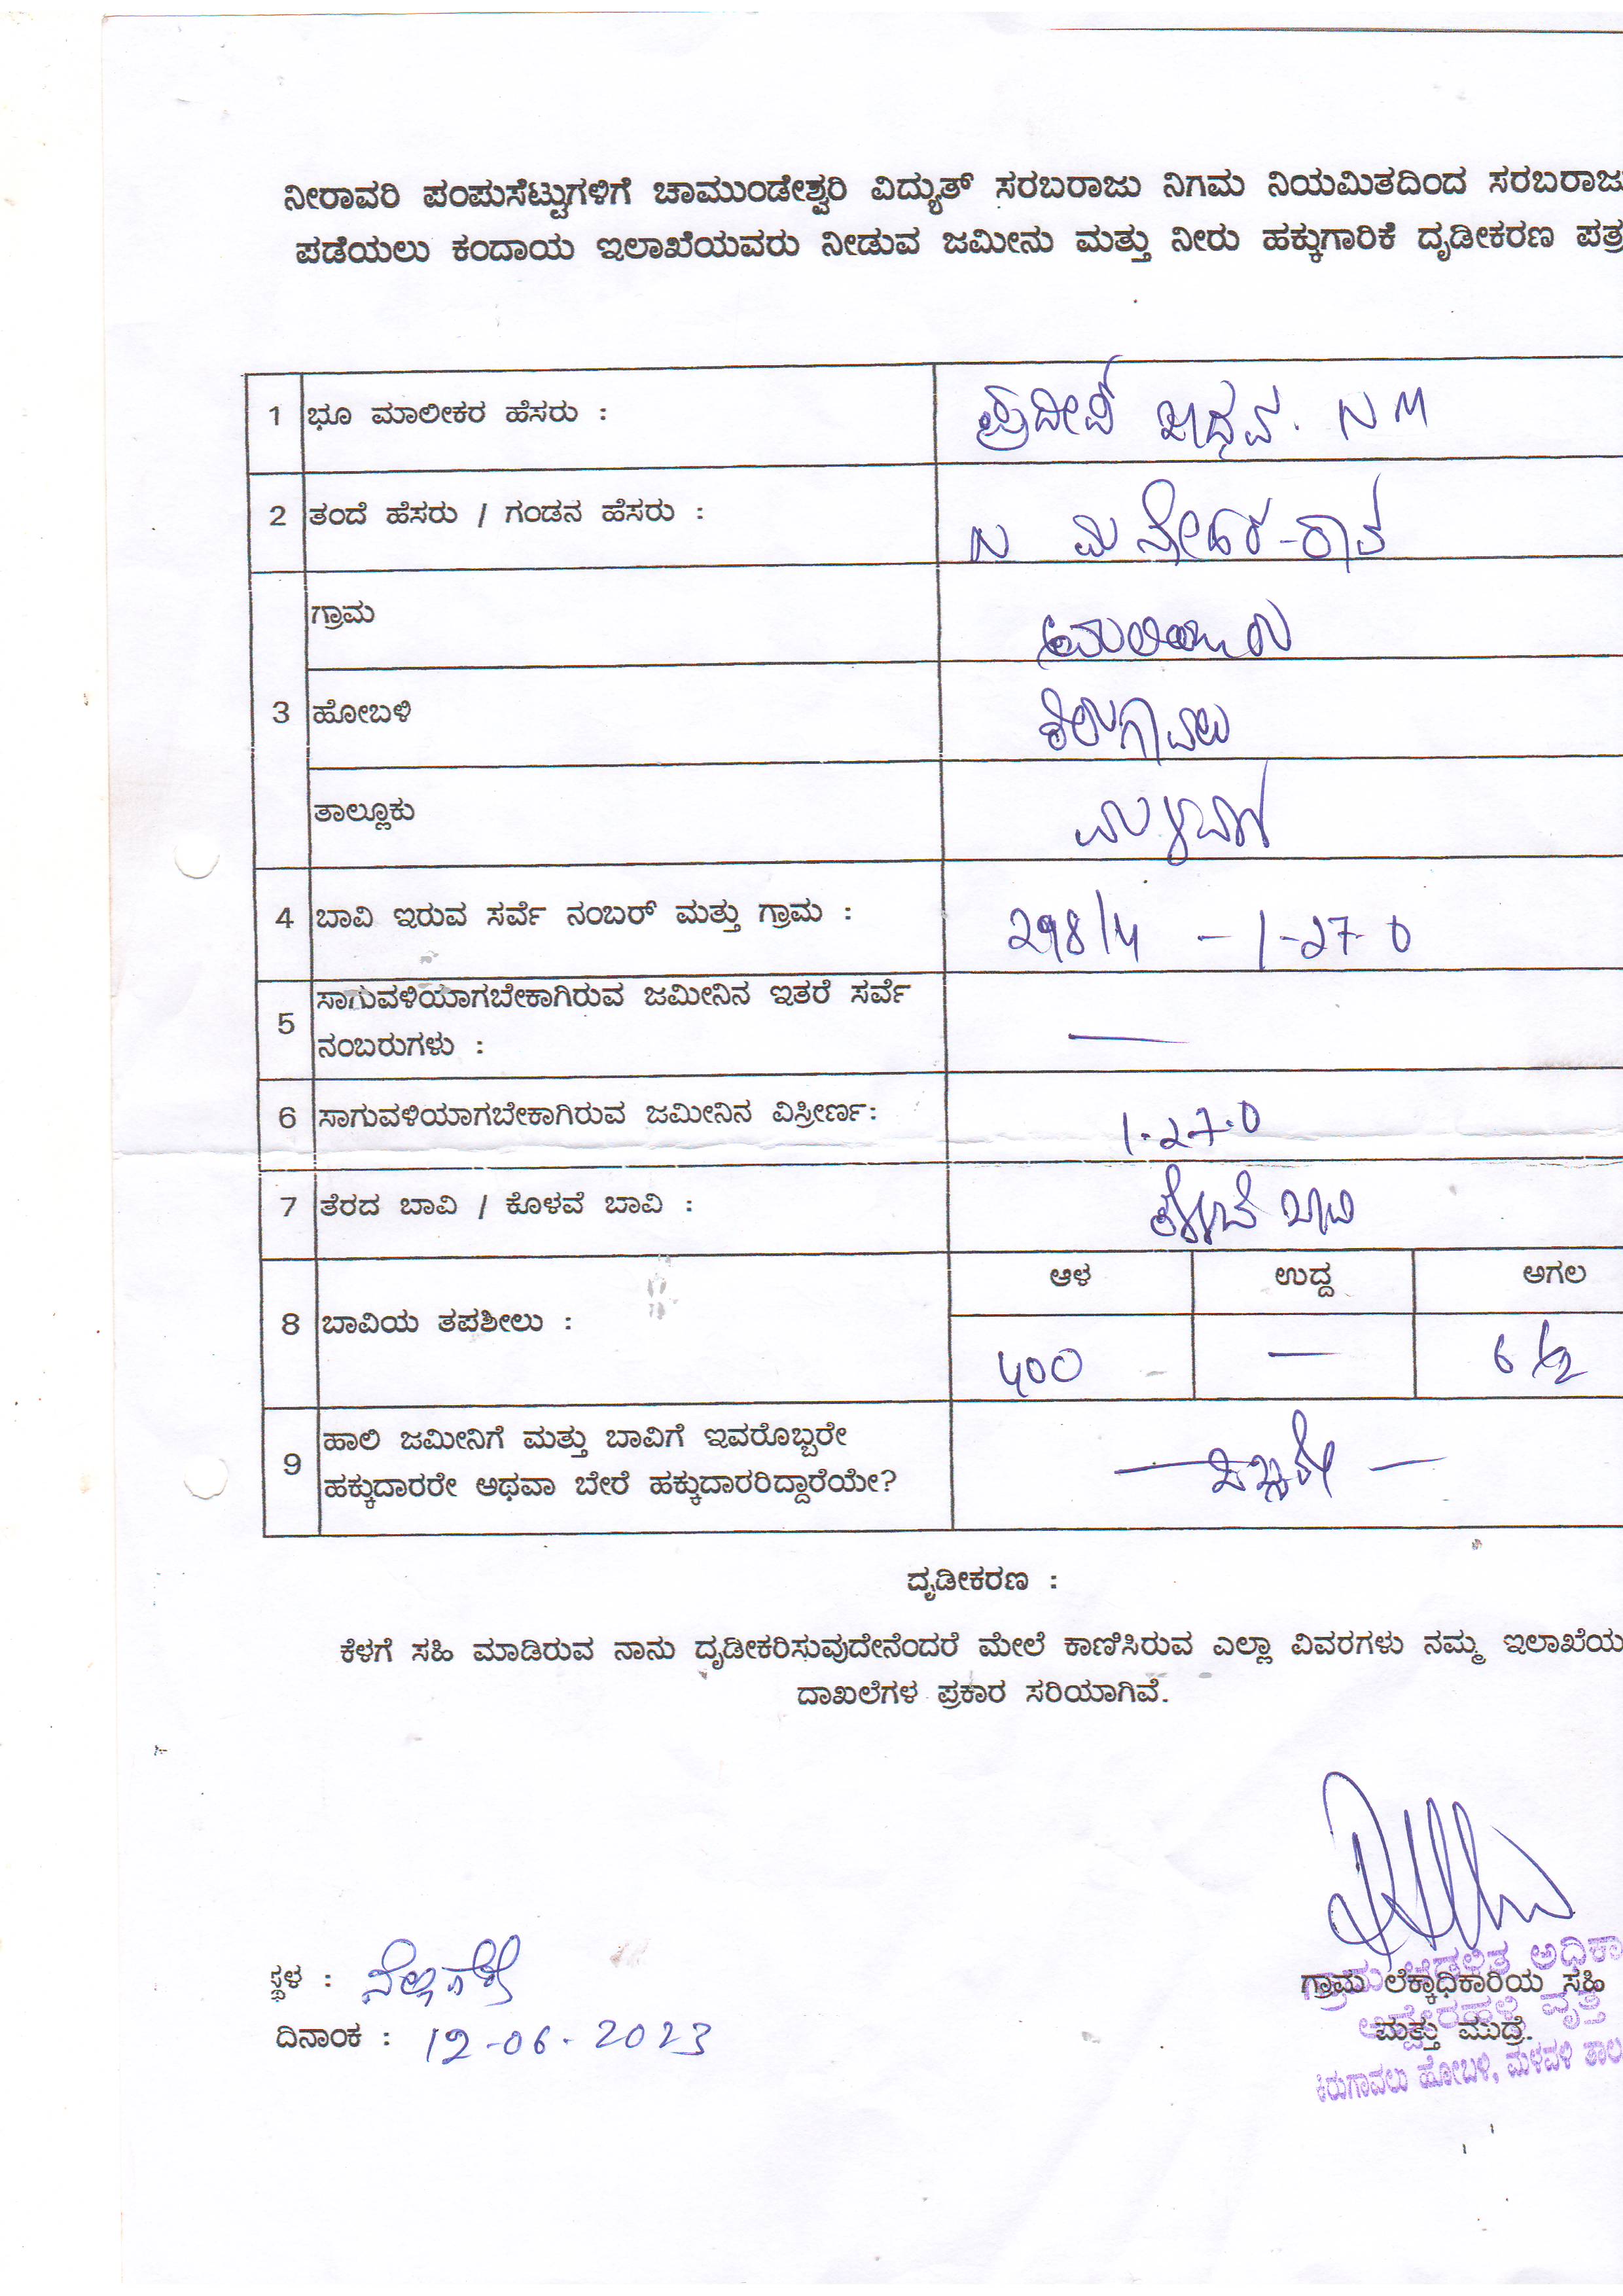 ನೀರಾವರಿ ಪಂಪುಸೆಟ್ಟುಗಳಿಗೆ ಚಾಮುಂಡೇಶ್ವರಿ ವಿದ್ಯುತ್ ಸರಬರಾಜು ನಿಗಮ ನಿಯಮಿತದಿಂದ ಸರಬರಾಜು
ಪಡೆಯಲು ಕಂದಾಯ ಇಲಾಖೆಯವರು ನೀಡುವ ಜಮೀನು ಮತ್ತು ನೀರು ಹಕ್ಕುಗಾರಿಕೆ ದೃಡೀಕರಣ ಪತ್ರ
1 ಭೂ ಮಾಲೀಕರ ಹೆಸರು : ಪ್ರದೀಪ್ N M
2 ತಂದೆ ಹೆಸರು / ಗಂಡನ ಹೆಸರು : N
ಗ್ರಾಮ
3 ಹೋಬಳಿ ಕಿರುಗಾವಲು
ತಾಲ್ಲೂಕು ಮಳವಳ್ಳಿ
4 ಬಾವಿ ಇರುವ ಸರ್ವೆ ನಂಬರ್ ಮತ್ತು ಗ್ರಾಮ : 298/4 - 1-27-0
5 ಸಾಗುವಳಿಯಾಗಬೇಕಾಗಿರುವ ಜಮೀನಿನ ಇತರೆ ಸರ್ವೆ
ನಂಬರುಗಳು : —
6 ಸಾಗುವಳಿಯಾಗಬೇಕಾಗಿರುವ ಜಮೀನಿನ ವಿಸ್ತೀರ್ಣ: 1-27-0
7 ತೆರದ ಬಾವಿ / ಕೊಳವೆ ಬಾವಿ : ಕೊಳವೆ ಬಾವಿ
ಆಳ ಉದ್ದ ಅಗಲ
8 ಬಾವಿಯ ತಪಶೀಲು : 400 — 6 1/2
9 ಹಾಲಿ ಜಮೀನಿಗೆ ಮತ್ತು ಬಾವಿಗೆ ಇವರೊಬ್ಬರೇ
ಹಕ್ಕುದಾರರೇ ಅಥವಾ ಬೇರೆ ಹಕ್ಕುದಾರರಿದ್ದಾರೆಯೇ? — ಒಬ್ಬರೇ —
ದೃಡೀಕರಣ :
ಕೆಳಗೆ ಸಹಿ ಮಾಡಿರುವ ನಾನು ದೃಡೀಕರಿಸುವುದೇನೆಂದರೆ ಮೇಲೆ ಕಾಣಿಸಿರುವ ಎಲ್ಲಾ ವಿವರಗಳು ನಮ್ಮ ಇಲಾಖೆಯ
ದಾಖಲೆಗಳ ಪ್ರಕಾರ ಸರಿಯಾಗಿವೆ.
ಸ್ಥಳ :
ಗ್ರಾಮ ಲೆಕ್ಕಾಧಿಕಾರಿಯ ಸಹಿ
ದಿನಾಂಕ : 12-06-2023
ಮತ್ತು ಮುದ್ರೆ.
ಗ್ರಾಮ ಆಡಳಿತ ಅಧಿಕಾ
ವೃತ್ತ
ಕಿರುಗಾವಲು ಹೋಬಳಿ, ಮಳವಳ್ಳಿ ತಾಲ